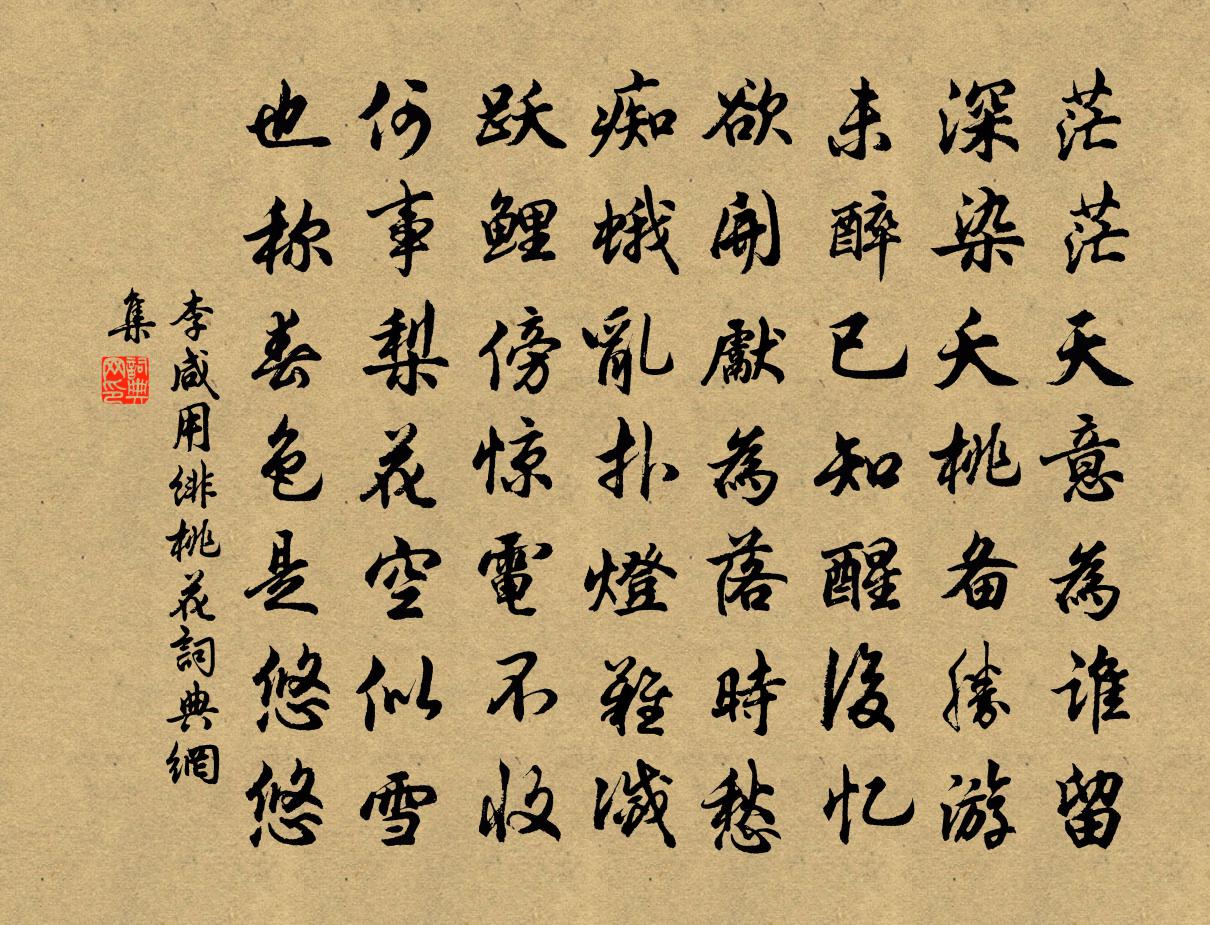 茫茫天意為谁留
深染夭桃备勝游
未醉已知醒後忆
欲開獻為落時愁
痴蛾亂扑燈難滅
跃鲤傍惊電不收
何事梨花空似雪
也称春色是悠悠
李咸用绯桃花詞典網
集
詞典网印